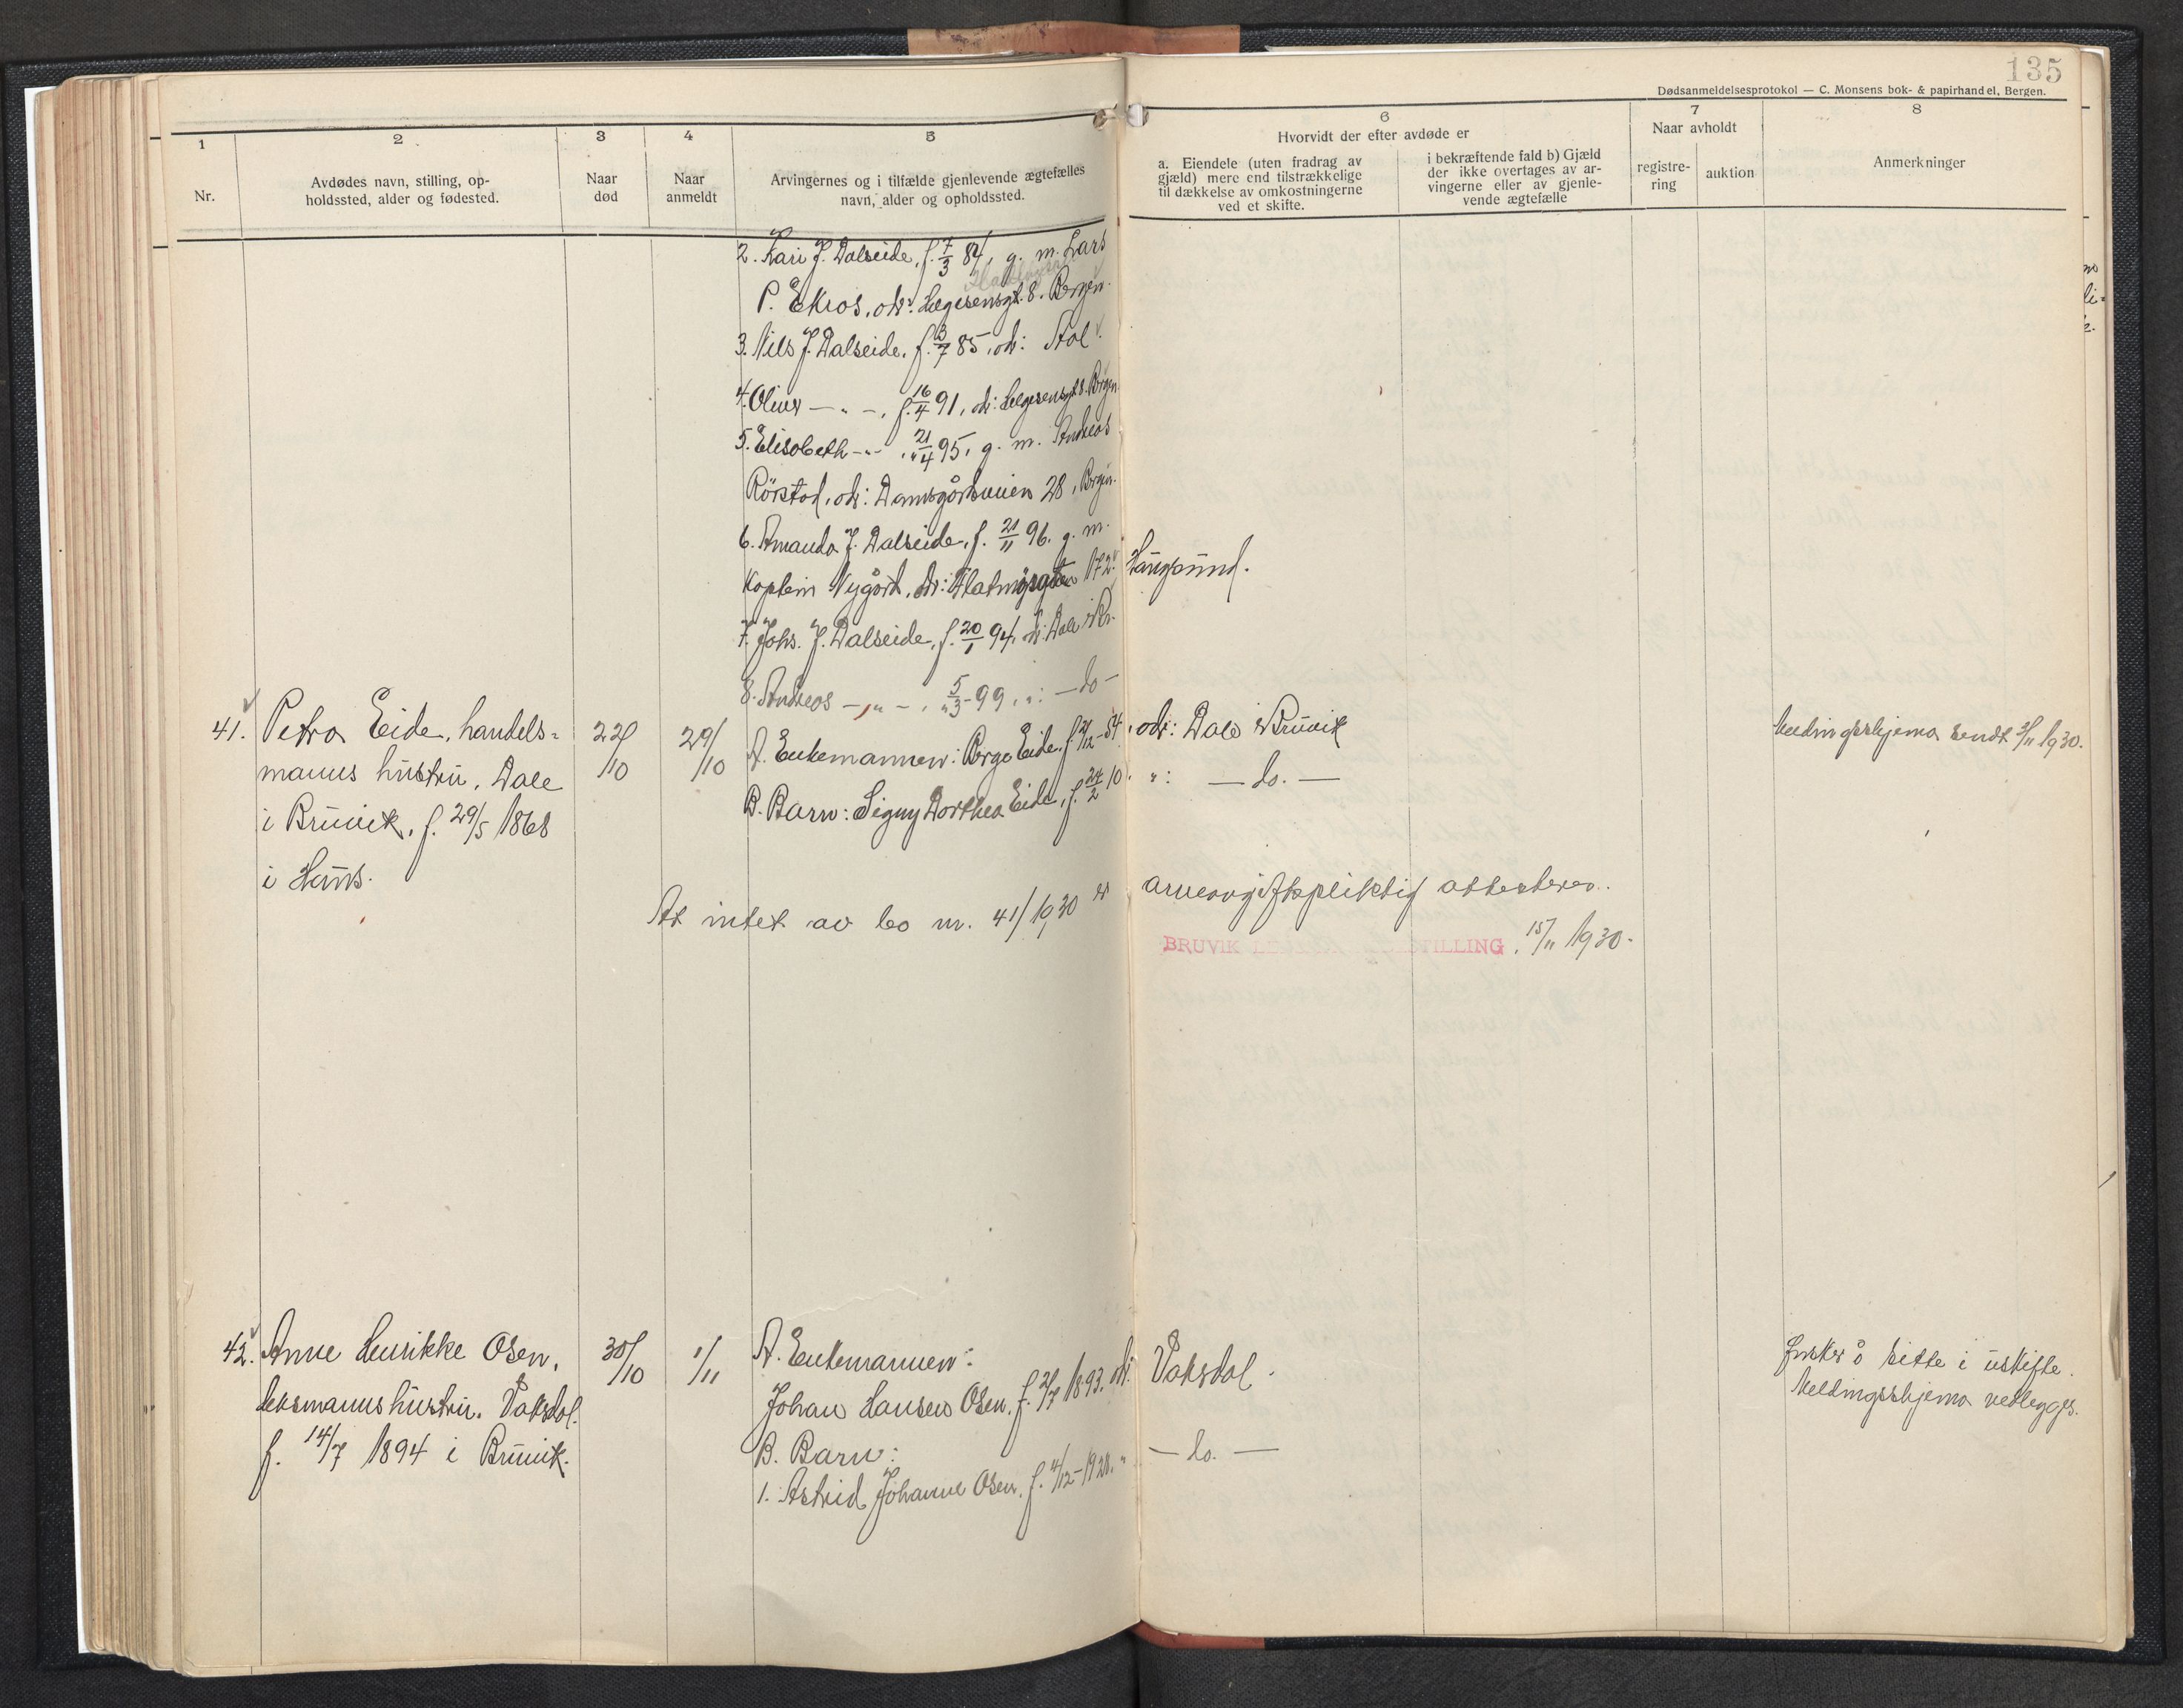 135
Dødsanmeldelsesprotokol — C. Monsens bok- & papirhandel, Bergen.
1
2
3
4
5
6
7
8
Nr.
Avdødes navn, stilling, op-
holdssted, alder og fødested.
Naar
død
Naar
anmeldt
Arvingernes og i tilfælde gjenlevende ægtefælles
navn, alder og opholdssted.
Hvorvidt der efter avdøde er
a. Eiendele (uten fradrag av
gjæld) mere end tilstrækkelige
til dækkelse av omkostningerne
ved et skifte.
i bekræftende fald b) Gjæld
der ikke overtages av ar-
vingerne eller av gjenle-
vende ægtefælle
Naar avholdt
registre-
ring
auktion
Anmerkninger
2. Kari J. Dalseide, f. 7/3 84, g. m. Lars
P. Ekros, adr: Helgesensgt. 8. Bergen.
3. Nils J. Dalseide, f. 3/7 85, adr:
4. Oliver — „ —, f. 16/4 91, adr: Helgesensgt 8. Bergen
5. Elisabeth — „ — „ 21/4 95, g. m. Andreas
Rörstad, adr: Damsgårdsveien 28, Bergen.
6. Amanda J. Dalseide, f. 21/11 96. g. m.
Kaptein Nygård, adr: 172 Haugesund.
7. Johs. J. Dalseide, f. 20/1 94, adr: Dale i Br.
8. Andreas — „ —, „ 5/3 99, „: — do —
41. Petra Eide, handels-
manns hustru, Dale
i Bruvik, f. 29/5 1868
i Haus.
22/10
29/10
A. Enkemannen: Berge Eide, f. 21/12 - 54, adr: Dale i Bruvik
B. Barn: Signy Dorthea Eide, f. 24/2 10. „: — do. —
Meldingsskjema sendt 3/11 1930.
At intet av bo nr. 41/1930 er arveavgiftspliktig attesteres.
BRUVIK 15/11 1930.
42. Anne Henrikke Osen,
leksmannshustru. Vaksdal.
f. 14/7 1894 i Bruvik.
30/10
1/11
A. Enkemannen:
Johan Hansen Osen, f. 21/7 1893. adr: Vaksdal.
B. Barn:
1. Astrid Johanne Osen, f. 4/12 - 1928. „ — do. —
Ønsker å sitte i uskifte.
Meldingsskjema vedlegges.